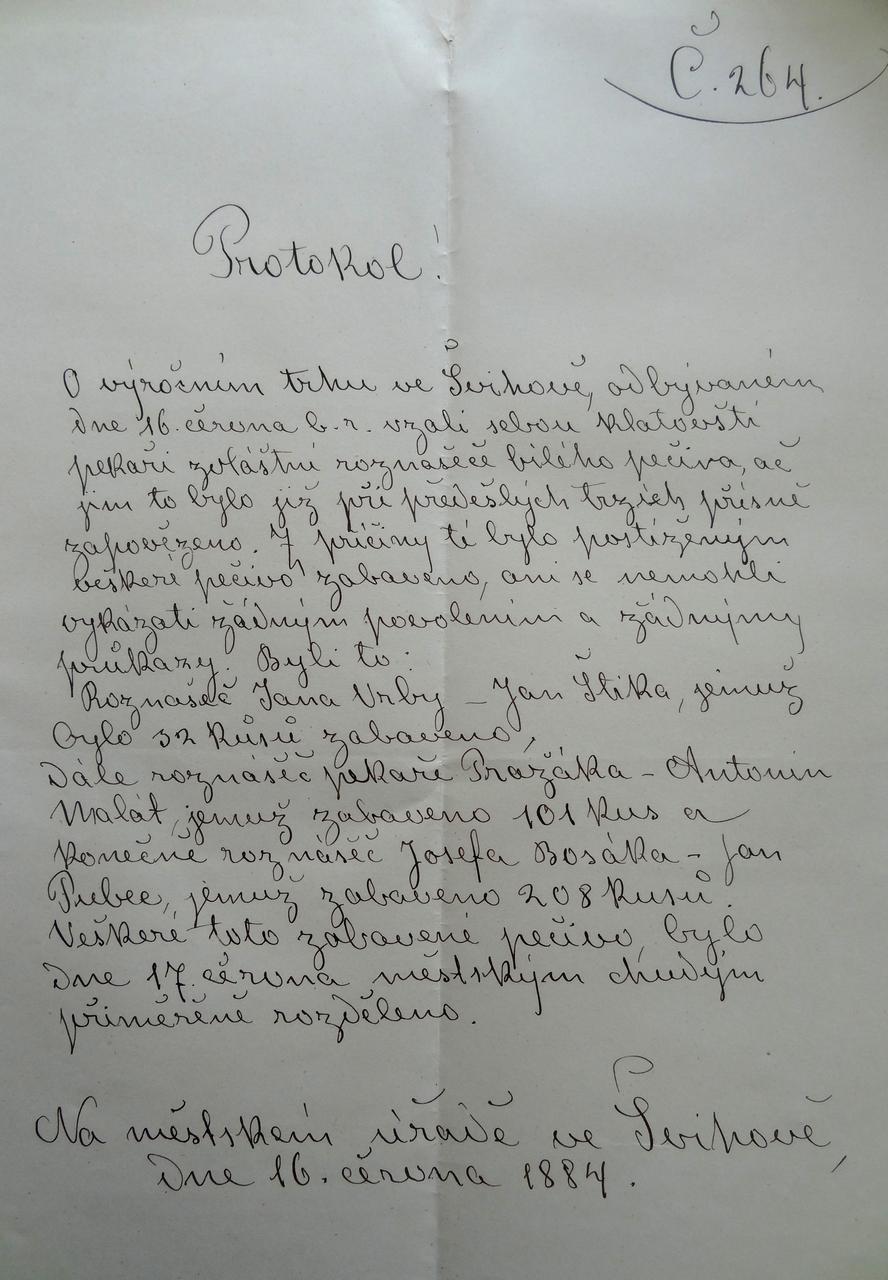 Č. 264.
Protokol!
O výročním trhu ve Švihově, odbývaném
dne 16. června b. r. vzali sebou klatovští
pekaři zvláštní roznašeče bílého pečiva, ač
jim to bylo již při předešlých trzích přísně
zapovězeno. Z příčiny té bylo postiženým
veškeré pečivo zabaveno, ani se nemohli
vykázati žádným povolením a žádnými
průkazy. Byli to:
Roznašeč Jana Vrby – Jan Štika, jemuž
bylo 32 kusů zabaveno,
Dále roznášeč pekaře Pražáka – Antonín
Malát, jemuž zabaveno 101 kus a
konečně roznášeč Josefa Bosáka – Jan
jemuž zabaveno 208 kusů.
Veškeré toto zabavené pečivo, bylo
dne 17. června městským chudým
přiměřeně rozděleno.
Na městském úřadě ve Švihově,
dne 16. června 1884.